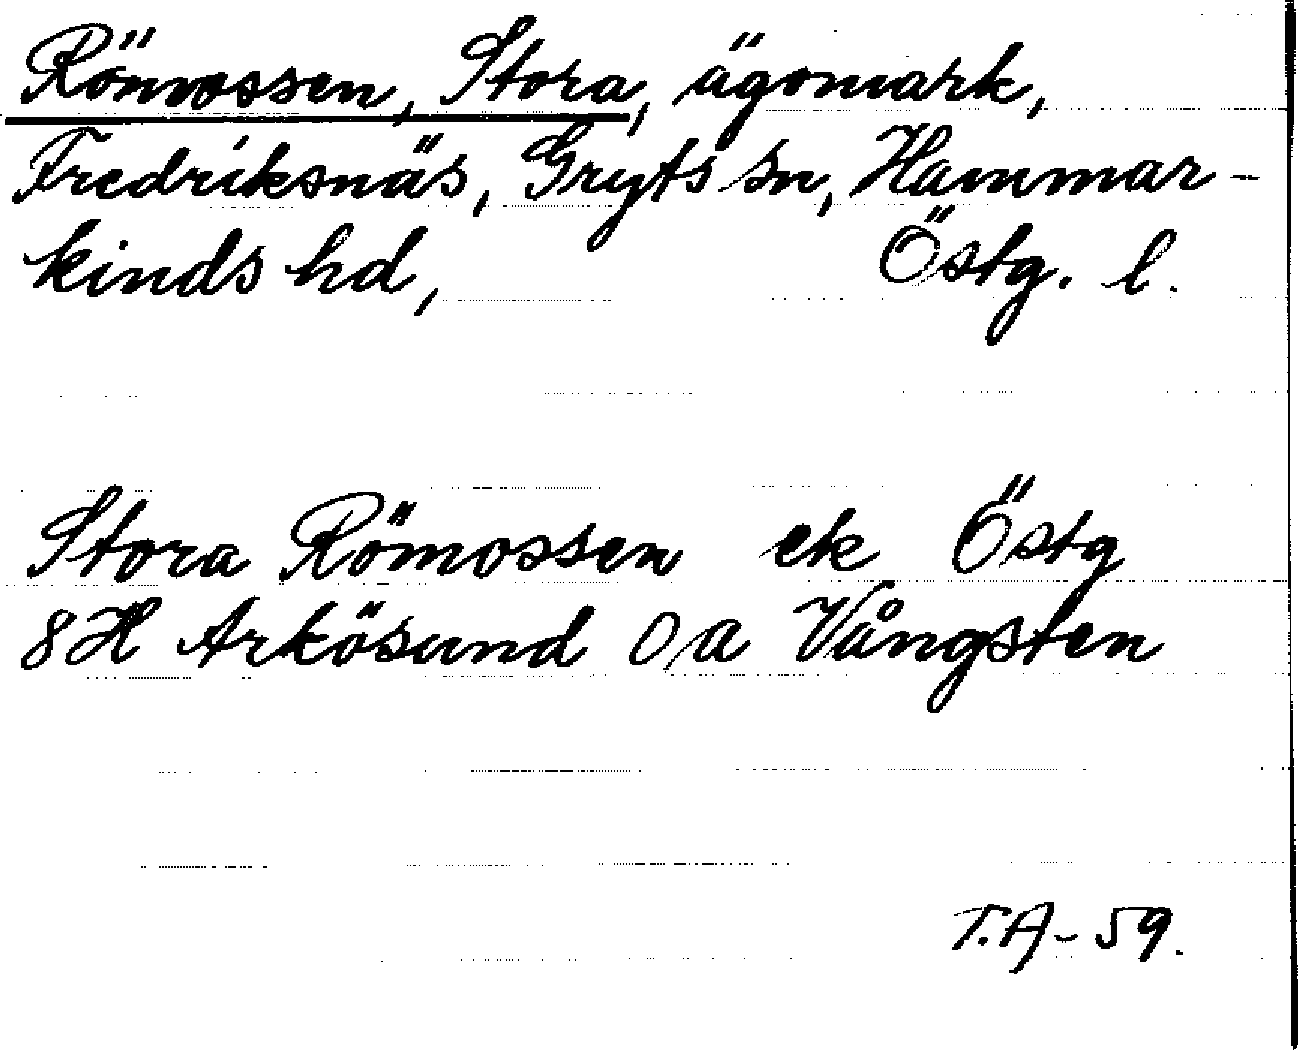 Römossen, Stora, ägomark,
Fredriksnäs, Gryts sn, Hammar-
kinds hd, Östg. l.
Stora Römossen ek Östg
8H Arkösund 0a Vångsten
T.A-59.